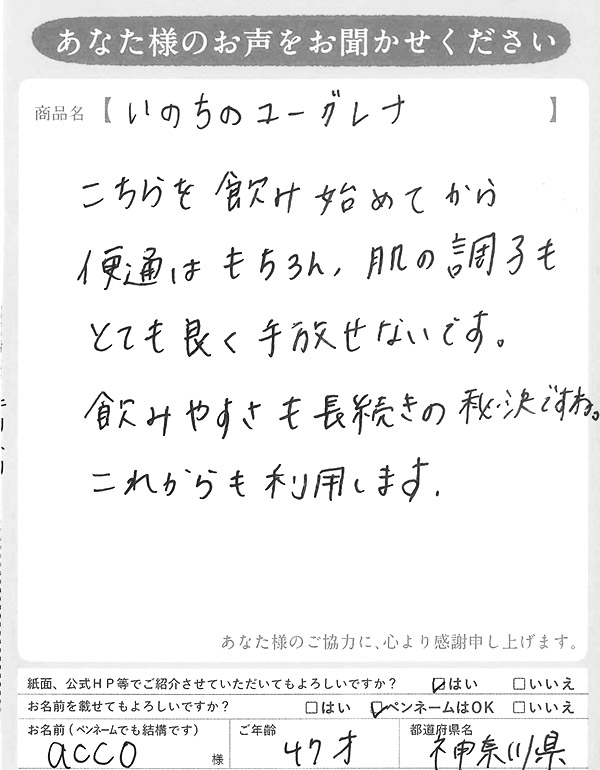 あなた様のお声をお聞かせください
商品名【いのちのユーグレナ】
こちらを飲み始めてから
便通はもちろん、肌の調子も
とても良く手放せないです。
飲みやすさも長続きの秘訣ですね。
これからも利用します。
あなた様のご協力に、心より感謝申し上げます。
紙面、公式HP等でご紹介させていただいてもよろしいですか? ☑はい □いいえ
お名前を載せてもよろしいですか? □はい ☑ペンネームはOK □いいえ
お名前(ペンネームでも結構です) ご年齢 都道府県名
acco 様 47才 神奈川県